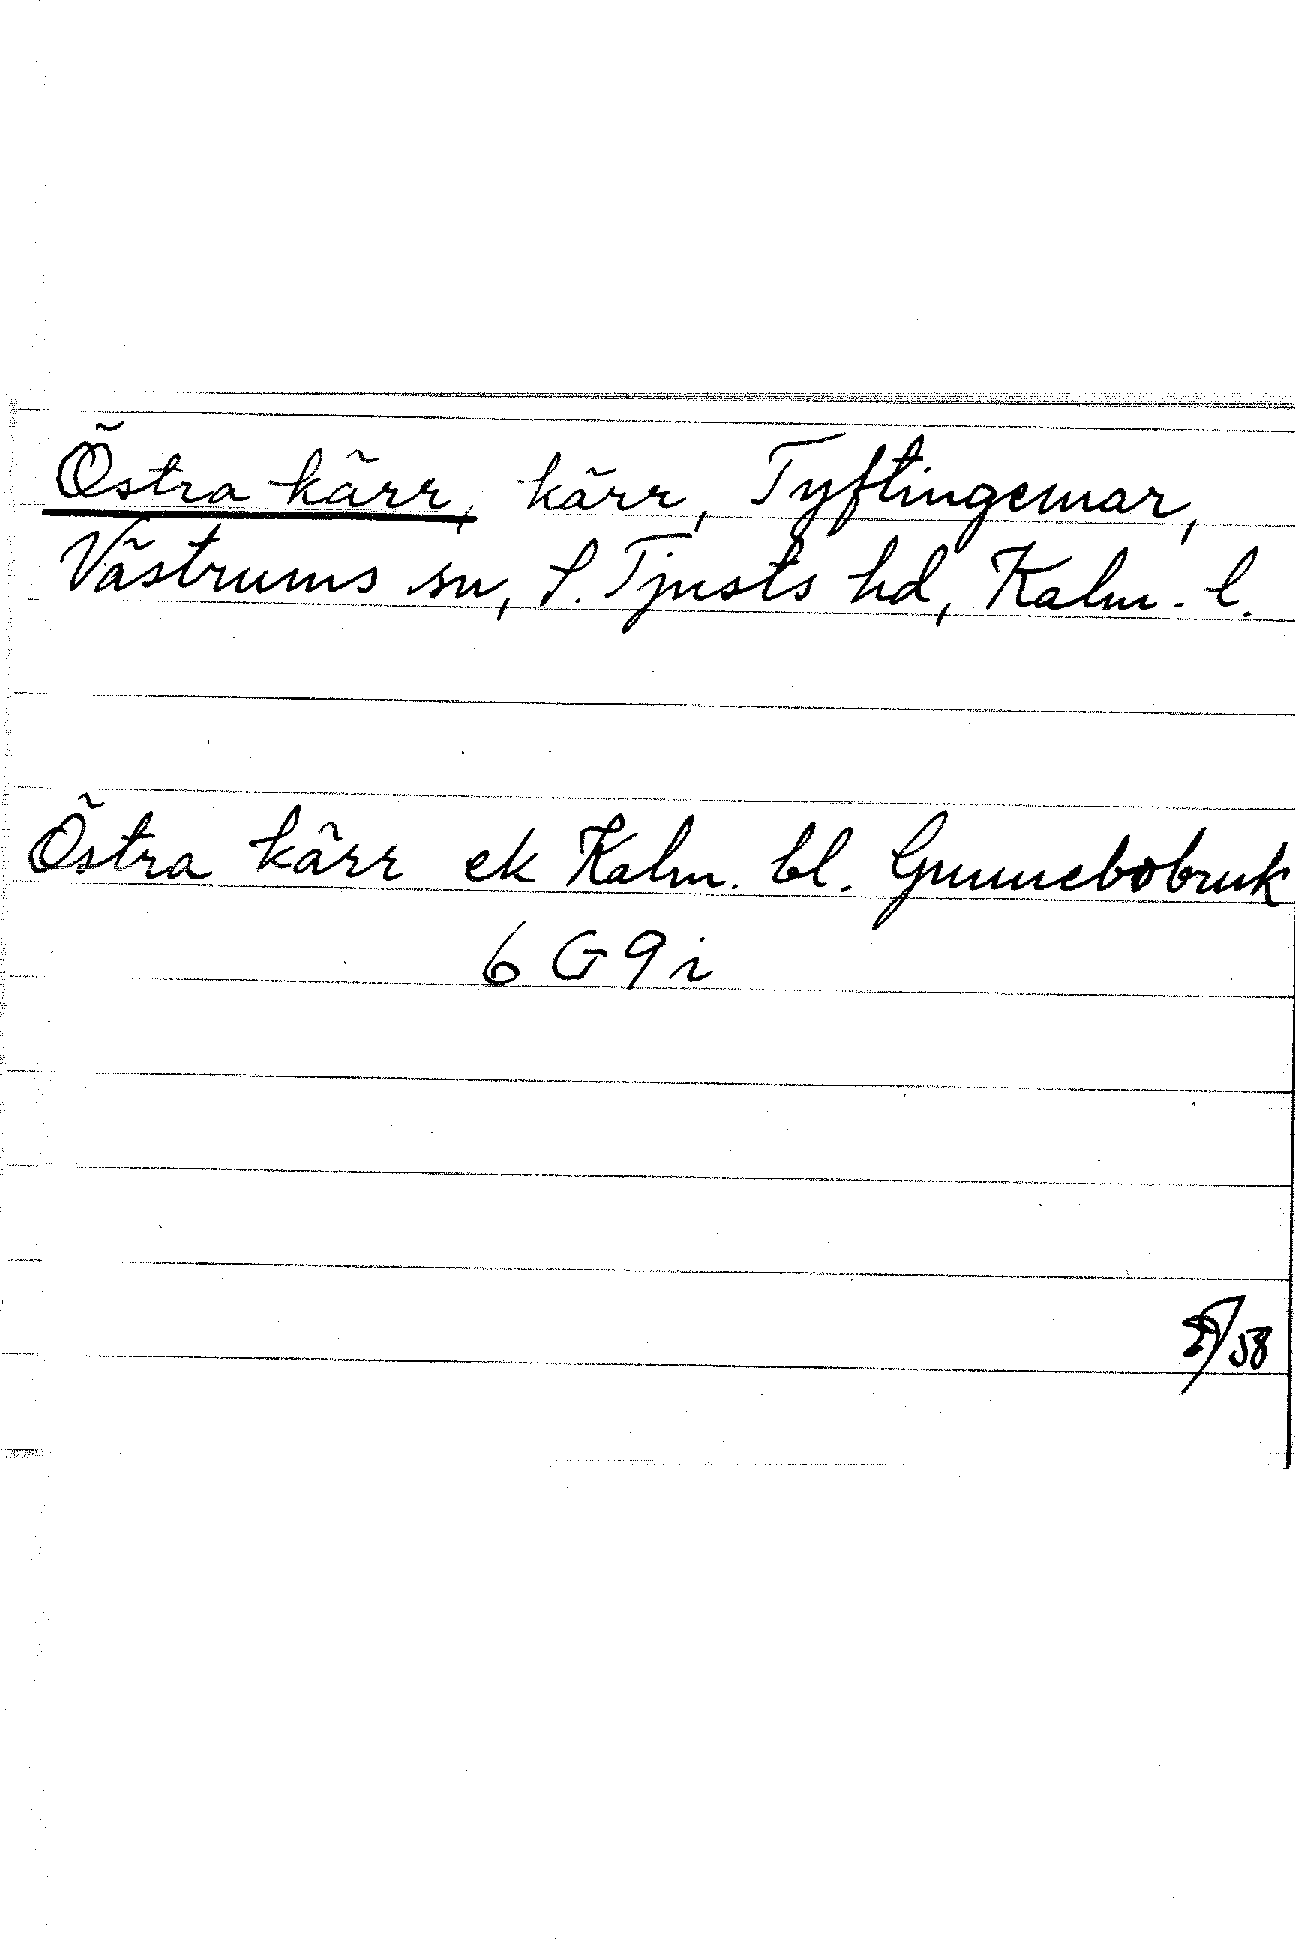 Östra kärr, kärr, Tyftingemar,
Västrums sn, S. Tjusts hd, Kalm. l.
Östra kärr ek Kalm. bl. Gunnebobruk
6 G 9 i
/58